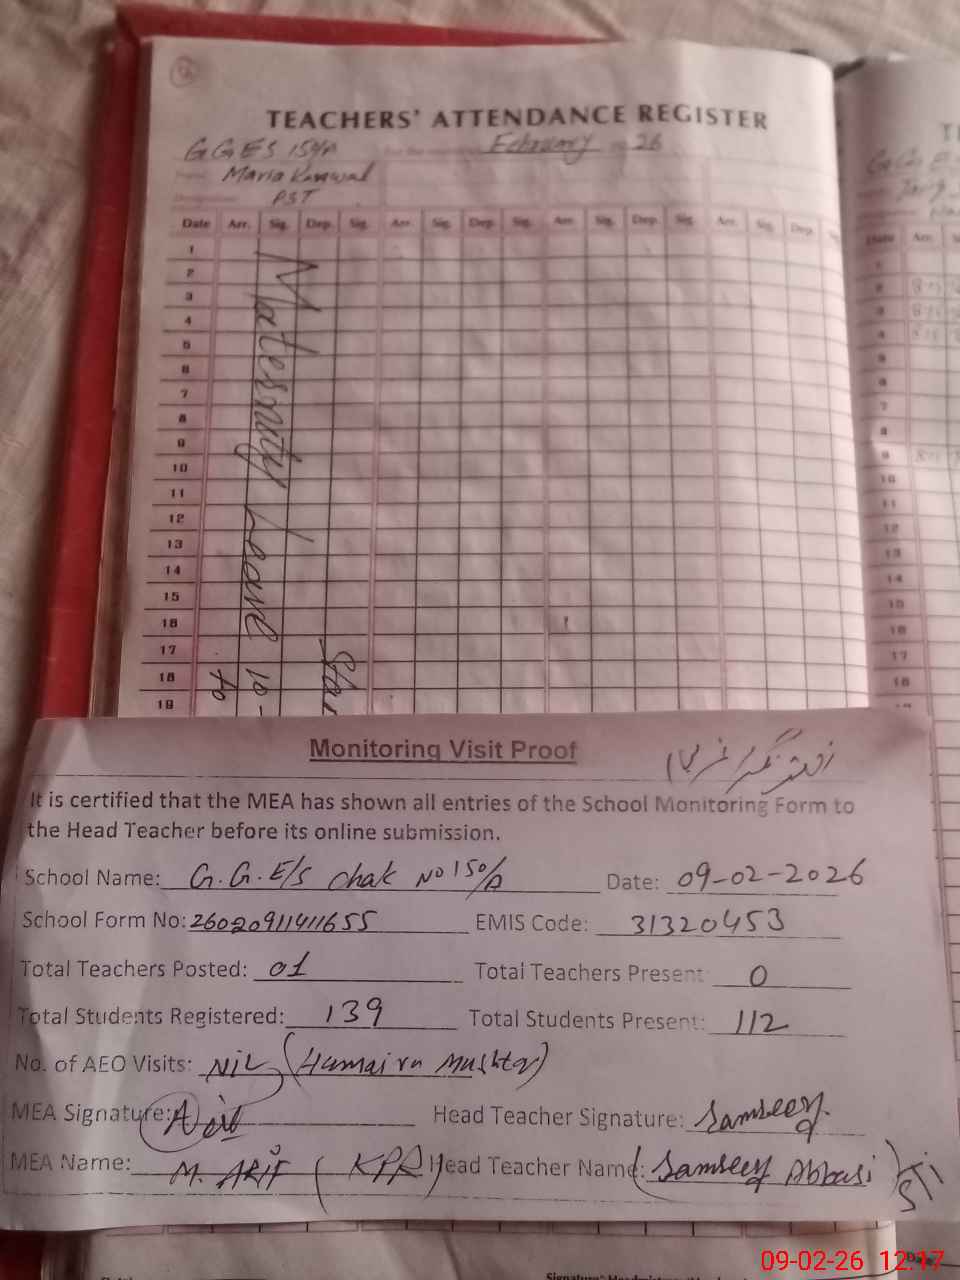 TEACHERS' ATTENDANCE REGISTER
GGES 150/A February 26
Maria Kanwal
PST
Date Arr. Sig. Dep. Sig. Arr. Sig. Dep. Sig. Arr. Sig. Dep. Sig. Arr. Sig. Dep.
1
2
3
4
5
6
7
8
9
10
11
12
13
14
15
16
17
18
19
Maternity Leave 10-
to
Star
Monitoring Visit Proof
It is certified that the MEA has shown all entries of the School Monitoring Form to
the Head Teacher before its online submission.
School Name: G.G.E/S chak No 150/A Date: 09-02-2026
School Form No: 26020911411655 EMIS Code: 31320453
Total Teachers Posted: 01 Total Teachers Present: 0
Total Students Registered: 139 Total Students Present: 112
No. of AEO Visits: NIL (Humaira Mushtaq)
MEA Signature: Head Teacher Signature: Samreey
MEA Name: M. ARIF (KPR) Head Teacher Name: (Samreey Abbasi) STI
09-02-26 12:17